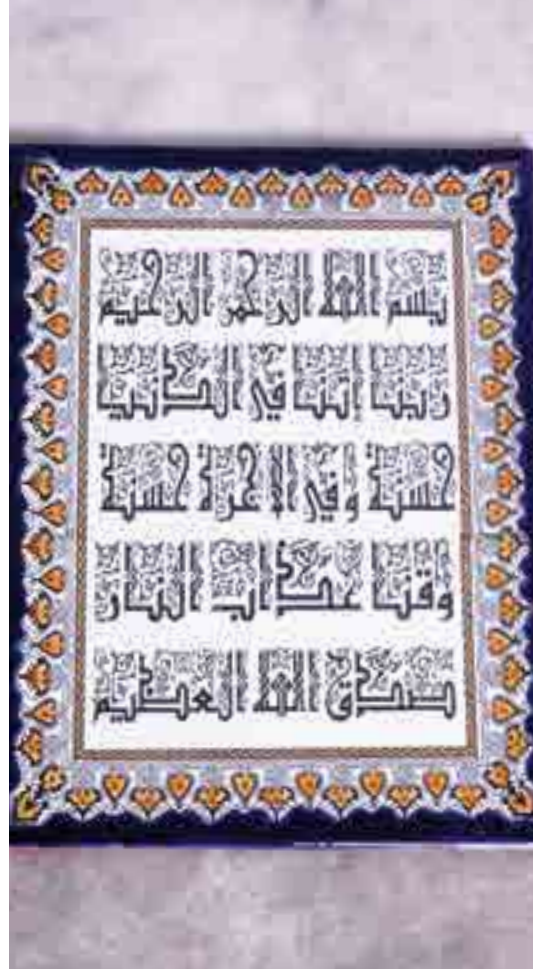 بسم الله الرحمن الرحيم
ربنا اتنا في الدنيا
حسنة وفي الاخرة حسنة
وقنا عذاب النار
صدق الله العظيم